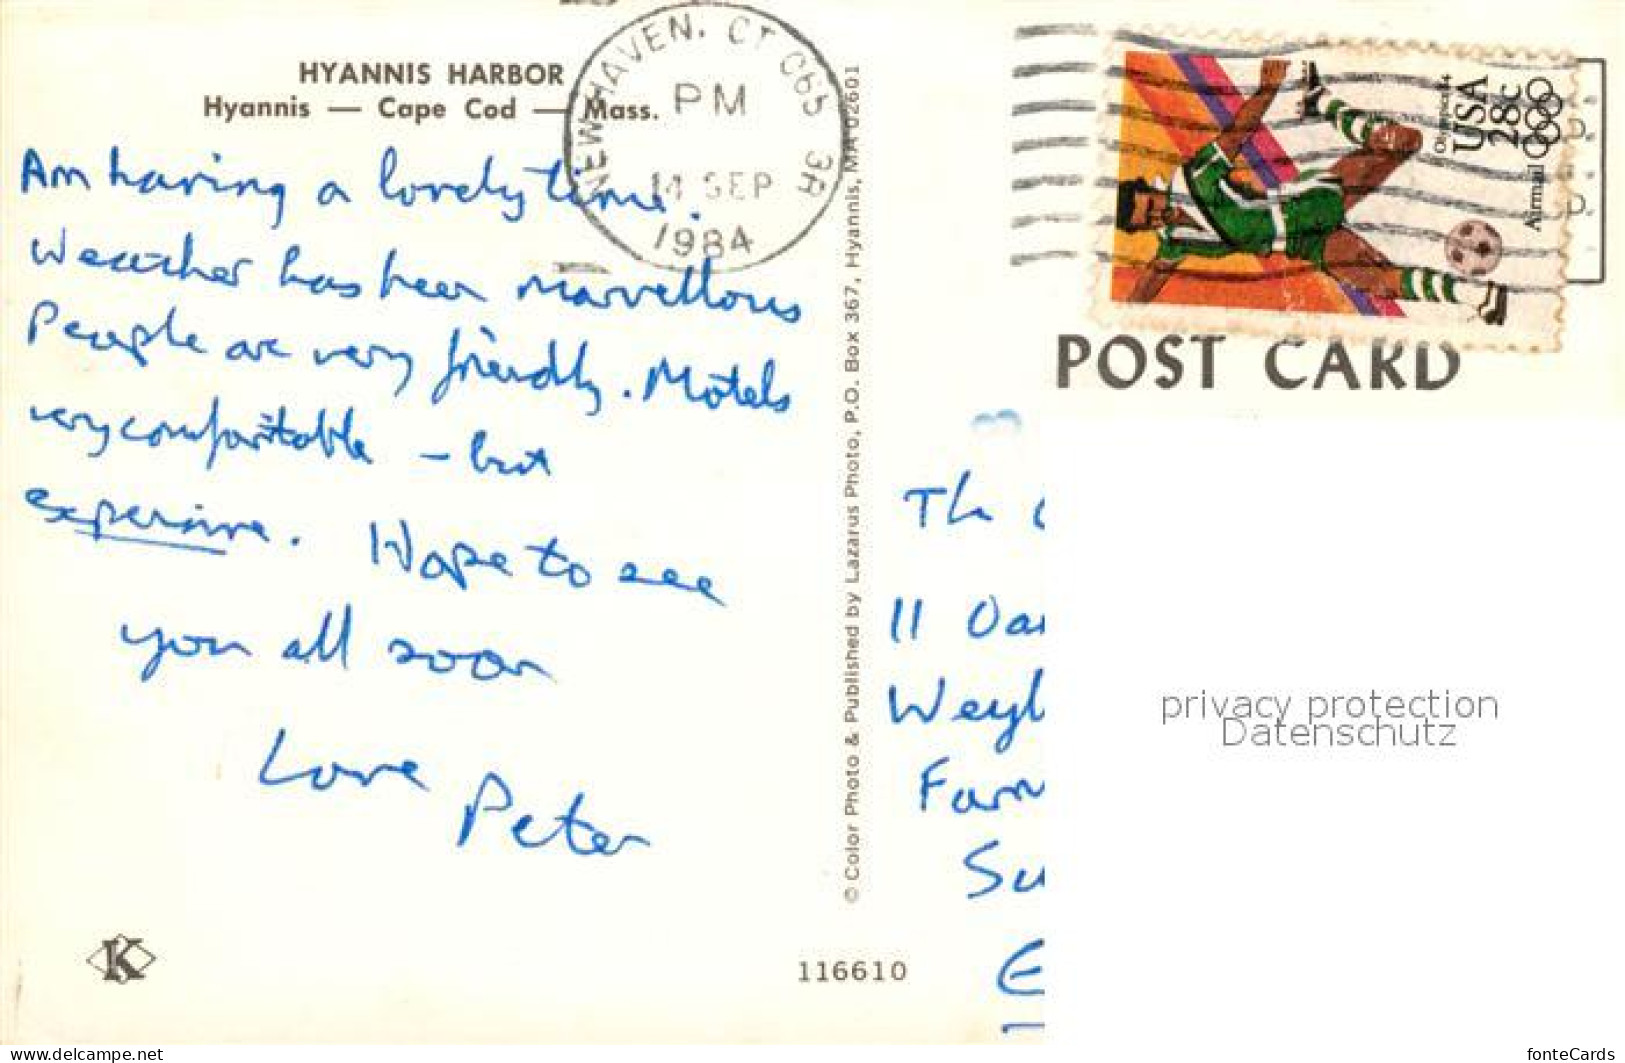 HYANNIS HARBOR
Hyannis — Cape Cod — Mass.
NEW HAVEN, CT 065 3A
PM
14 SEP
1984
Am having a lovely time.
Weather has been marvellous
People are very friendly. Motels
very comfortable - but
expensive. Hope to see
you all soon
Love Peter
K
116610
© Color Photo & Published by Lazarus Photo, P.O. Box 367, Hyannis, MA 02601
Olympics 84
USA
28c
Airmail
POST CARD
The
11 Oa
Weyb
Farn
Su
E
privacy protection
Datenschutz
www.delcampe.net
fonteCards